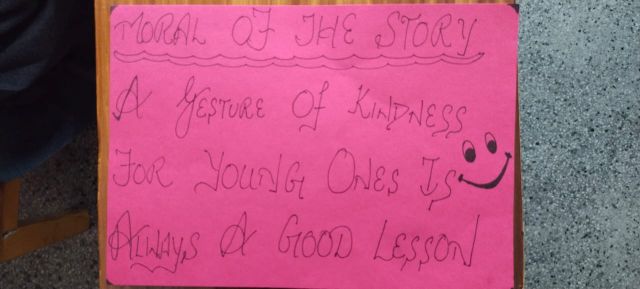 MORAL OF THE STORY
A GESTURE OF KINDNESS
FOR YOUNG ONES IS
ALWAYS A GOOD LESSON